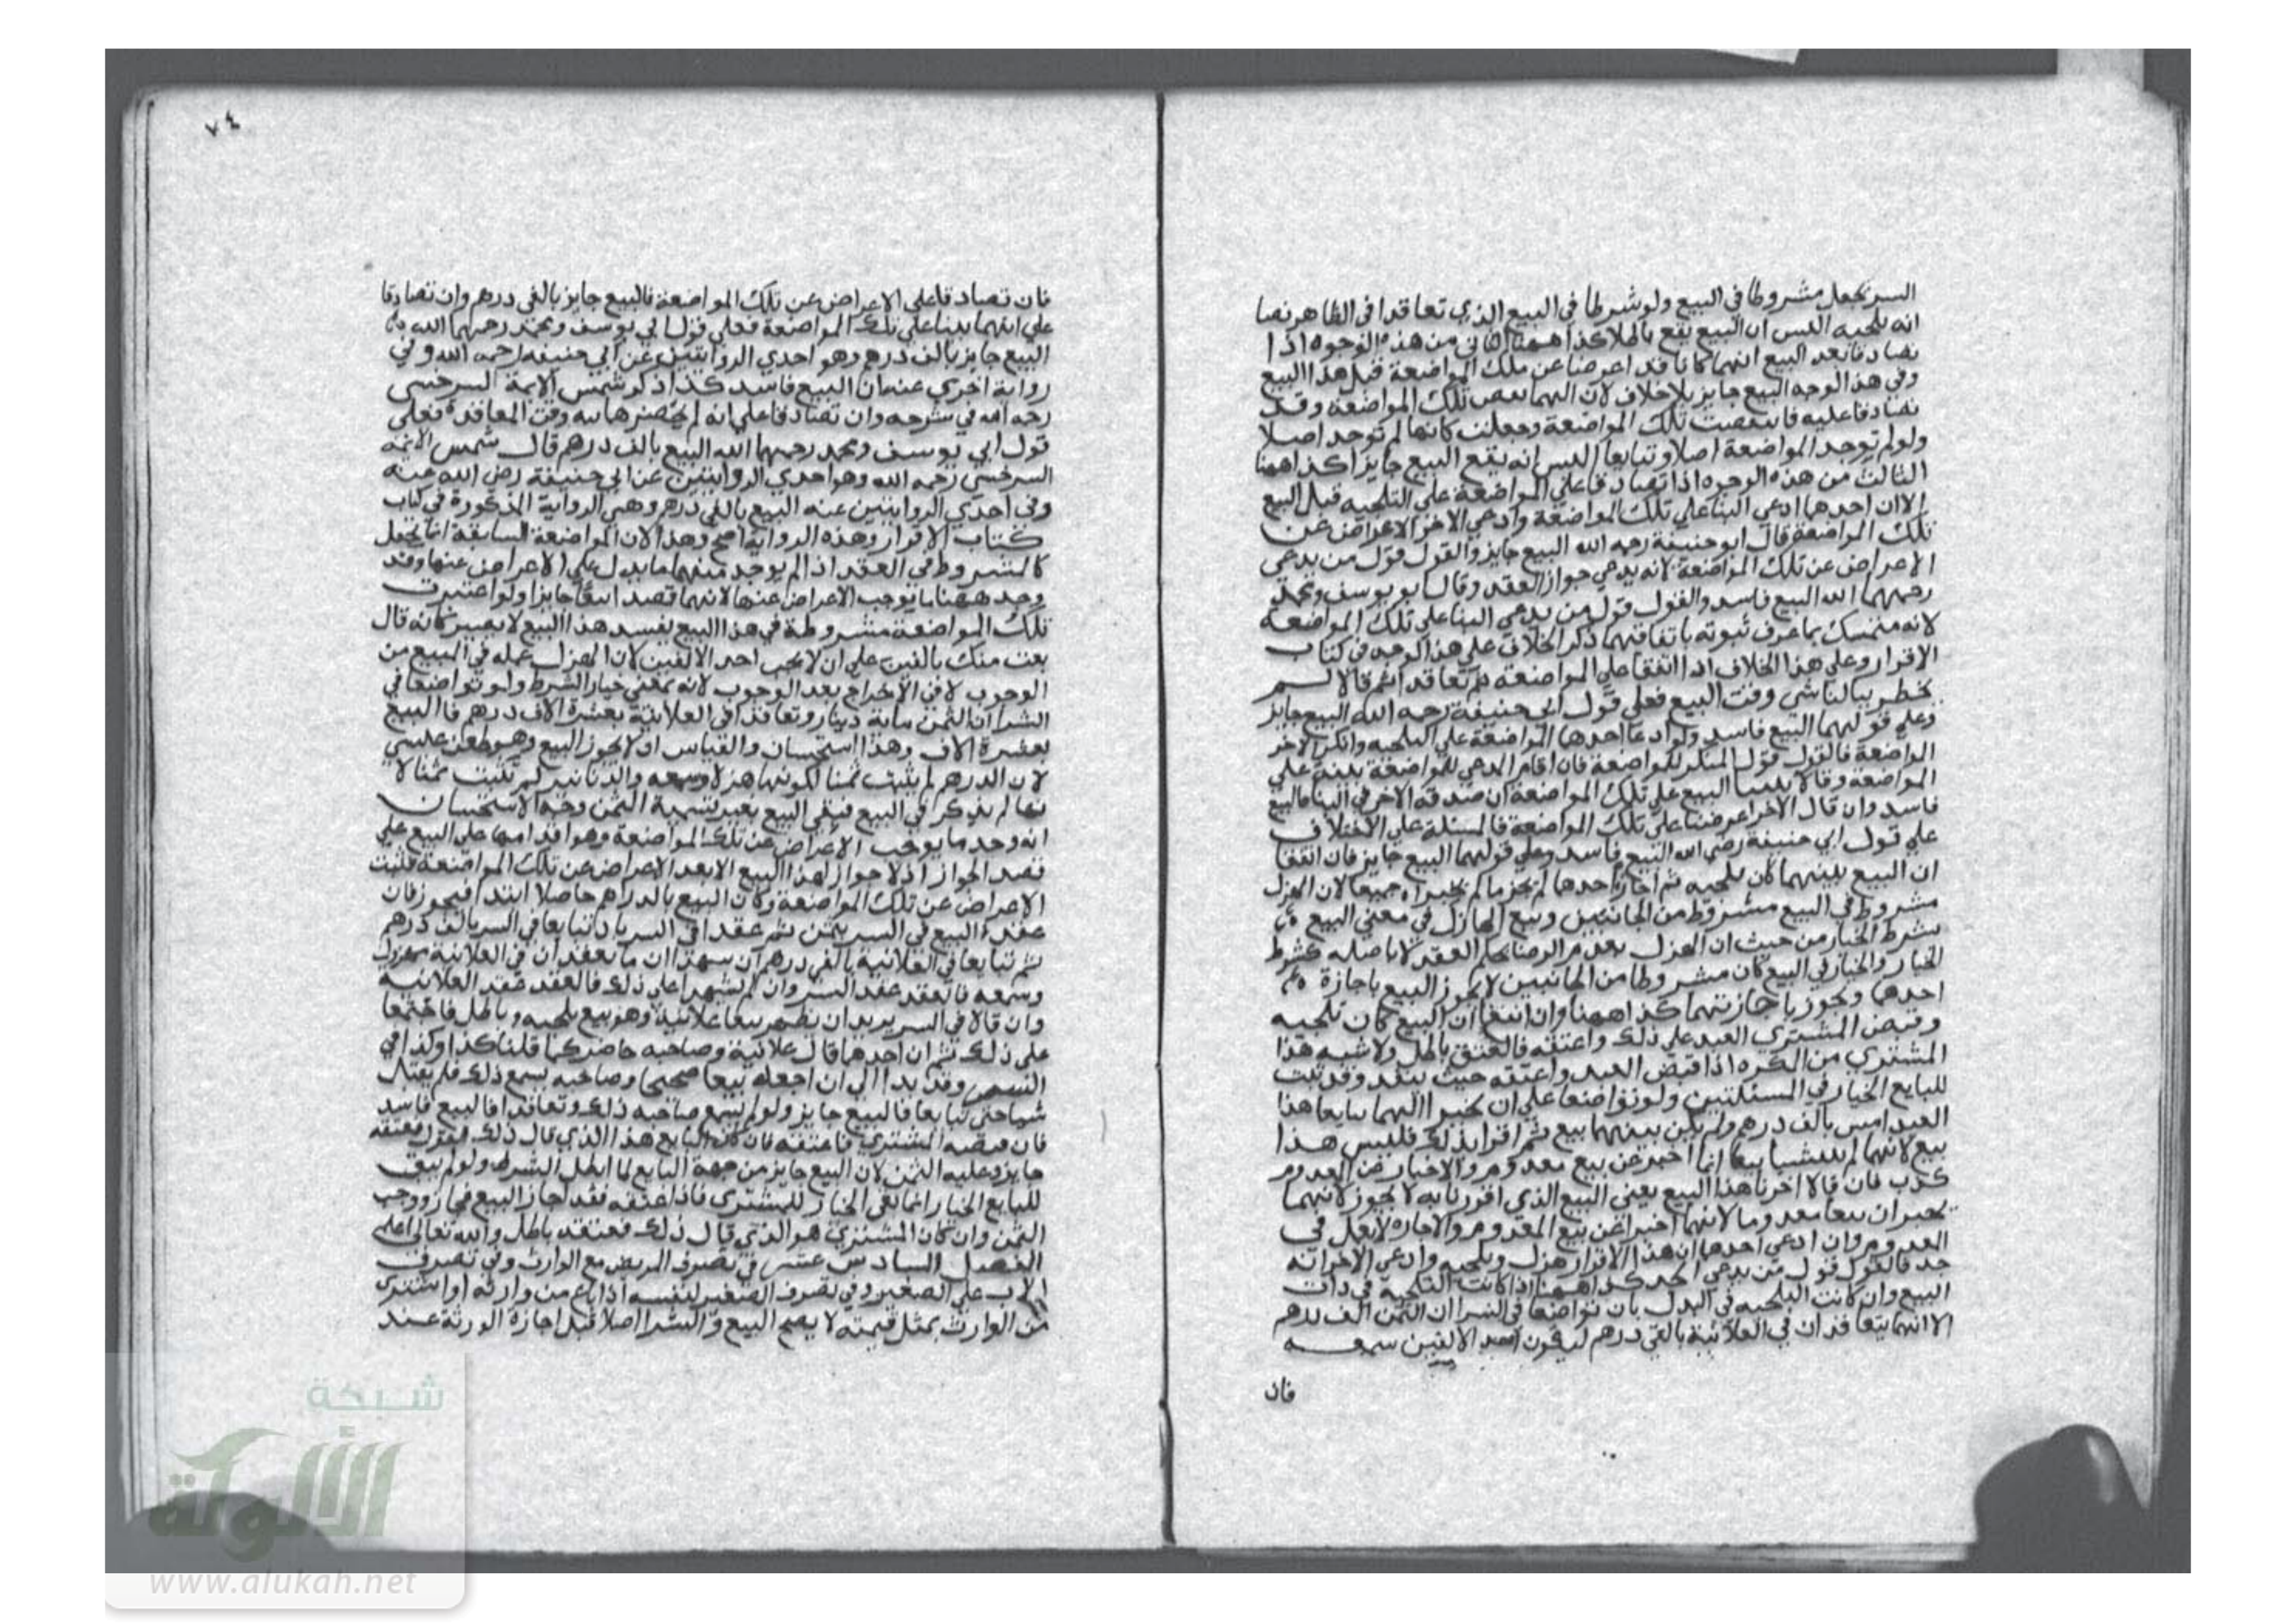 السر يجعل مشروطا في البيع ولو شرطا في البيع الذي تعاقدا في الظاهر نصا
انه تلجيه اليس ان البيع يقع باطلا كذا ههنا الثاني من هذه الوجوه اذا
تصادقا بعد البيع انهما كانا قد اعرضا عن تلك المواضعة قبل هذا البيع
وفي هذا الوجه البيع جايز بلا خلاف لان تلك المواضعة وقد
تصادقا عليه فانتقضت تلك المواضعة وجعلت كانها لم توجد اصلا
ولو لم توجد المواضعة اصلا وتبايعا اليس انه يقع البيع جايزا كذا ههنا
الثالث من هذه الوجوه اذا تصادقا على المواضعة على التلجيه قبل البيع
الا ان احدهما ادعى البنا على تلك المواضعة وادعى الاخر الاعراض عن
تلك المواضعة قال ابو حنيفة رحمه الله البيع جايز والقول قول من يدعي
الاعراض عن تلك المواضعة لانه يدعي جواز العقد وقال ابو يوسف ومحمد
رحمهما الله البيع فاسد والقول قول من يدعي البنا على تلك المواضعة
لانه متمسك بما عرف ثبوته باتفاقهما ذكر الخلاف على هذا الوجه في كتاب
الاقرار وعلى هذا الخلاف اذا اتفقا على المواضعة ثم تعاقدا ثم قالا لم
يخطر ببالنا شي وقت البيع فعلى قول ابي حنيفة رحمه الله البيع جايز
وعلى قولهما البيع فاسد ولو ادعا احدهما المواضعة على التلجيه وانكر الاخر
المواضعة فالقول قول المنكر للمواضعة فان اقام المدعي للمواضعة بينة على
المواضعة وقال بنينا البيع على تلك المواضعة ان صدقه الاخر في البنا فالبيع
فاسد وان قال الاخر اعرضنا على تلك المواضعة فالمسئلة على الاختلاف
على قول ابي حنيفة رضي الله البيع فاسد وعلى قولهما البيع جايز فان اتفقا
ان البيع بينهما كان تلجيه ثم اجاز احدهما لم يجز ما لم يجيزاه جميعا لان الهزل
مشروط في البيع مشروط من الجانبين وبيع الهازل في معنى البيع
بشرط الخيار من حيث ان الهزل يعدم الرضا بحكم العقد لا باصله كشرط
الخيار والخيار في البيع كان مشروطا من الجانبين لا يجوز البيع باجازة
احدهما ويجوز باجازتهما كذا ههنا وان اتفقا ان البيع كان تلجيه
وقبض المشتري العبد على ذلك واعتقه فالعتق باطل ولا شبه هذا
المشتري من المكره اذا قبض العبد واعتقه حيث ينفد وقد ثبت
للبايع الخيار في المسئلتين ولو تواضعا على ان يخبرا انهما تبايعا هذا
العبد امس بالف درهم ولم يكن بينهما بيع ثم اقرا بذلك فليس هذا
بيع لانهما لم ينشيا بيعا انما اخبر عن بيع معدوم والاخبار عن المعدوم
كذب فان قالا اجزنا هذا البيع يعني البيع الذي اقررنا به لا يجوز لانهما
يجيزان بيعا معدوما لانهما اخبرا عن بيع المعدوم والاجازة لا تعمل في
المعدوم وان ادعى احدهما ان هذا الاقرار هزل وتلجيه وادعى الاخر انه
جد فالقول قول من يدعي الجد كذا ههنا اذا كانت التلجية في ذات
البيع وان كانت التلجيه في البدل بان تواضعا في السر ان الثمن الف درهم
الا انهما يتعاقدان في العلانية بالفي درهم ليكون احد الالفين سمعه
فان
٧٤
فان تصادقا على الاعراض عن تلك المواضعة فالبيع جايز بالفي درهم وان تصادقا
على انهما بنينا على تلك المواضعة فعلى قول ابي يوسف ومحمد رحمهما الله
البيع جايز بالف درهم وهو احدي الروايتين عن ابي حنيفه رحمه الله وفي
رواية اخري عنه ان البيع فاسد كذا ذكر شمس الايمة السرخسي
رحمه الله في شرحه وان تصادقا على انه لم يحضرهما نيه وقت المعاقدة فعلى
قول ابي يوسف ومحمد رحمهما الله البيع بالف درهم قال شمس الايمه
السرخسي رحمه الله وهو احدي الروايتين عن ابي حنيفة رضي الله عنه
وفي احدي الروايتين عنه البيع بالفي درهم وهي الرواية المذكورة في كتاب
كتاب الاقرار وهذه الرواية اصح وهذا لان المواضعة السابقة انما تجعل
كالمشروط في العقد اذا لم يوجد منهما ما يدل على الاعراض عنها وقد
وجد ههنا ما يوجب الاعراض عنها لانهما قصدا بيعا جايزا ولو اعتبرت
تلك المواضعة مشروطة في هذا البيع يفسد هذا البيع لانه يصير كانه قال
بعت منك بالفين على ان لا يجب احد الالفين لان الهزل عمله في المبيع من
الوجوب لا في الاخراج بعد الوجوب لانه بمعنى خيار الشرط ولو تواضعا في
الشرا ان الثمن ماية دينار وتعاقدا في العلانية بعشرة الاف درهم فالبيع
بعشرة الاف وهذا استحسان والقياس ان لا يجوز البيع وهو
لان الدرهم لم يثبت ثمنا لكونها هزلا وسمعه والدنانير لم تثبت ثمنا لا
نها لم يذكر في البيع فبقي البيع بغير تسمية الثمن وجه الاستحسان
انه وجد ما يوجب الاعراض عن تلك المواضعة وهو اقدامهما على البيع على
قصد الجواز اذ لا جواز لهذا البيع الا بعد الاعراض عن تلك المواضعة فثبت
الاعراض عن تلك المواضعة وكان البيع بالدراهم حاصلا ابتدا فيجوز فان
عقدا البيع في السر بثمن ثم عقدا في السر بان تبايعا في السر بالف درهم
ثم تبايعا في العلانية بالفي درهم ان شهدا ان ما يعقدان في العلانية هزل
وسمعه فالعقد عقد السر وان لم يشهدا على ذلك فالعقد عقد العلانيه
وان قالا في السر يريد ان نظهر بيعا علانية وهو بيع تلجيه وباطل فاجتمعا
على ذلك ثم ان احدهما قال علانية وصاحبه حاضر كما قلنا كذا وكذا في
السر وقد بدا الي ان اجعله بيعا صحيحا وصاحبه يسمع ذلك فلم يقل
شيا حتى تبايعا فالبيع جايز ولو لم يسمع صاحبه ذلك وتعاقدا فالبيع فاسد
فان قبضه المشتري فاعتقه فان كان البايع هذا الذي قال ذلك فعتقه
جايز وعليه الثمن لان البيع جايز من جهة البايع لما ابطل الشرط ولو لم يبق
للبايع الخيار انما بقي الخيار للمشتري فاذا اعتقه فقد اجاز البيع فجاز ووجب
الثمن وان كان المشتري هو الذي قال ذلك فعتقه باطل والله تعالى اعلم
الفصل السادس عشر في تصرف المريض مع الوارث وفي تصرف
الاب على الصغير وفي تصرف الصغير لنفسه اذا باع من وارثه او اشترى
من الوارث بمثل قيمته لا يصح البيع والشرا اصلا قبل اجازة الورثة عند
شبكة
الألوكة
www.alukah.net